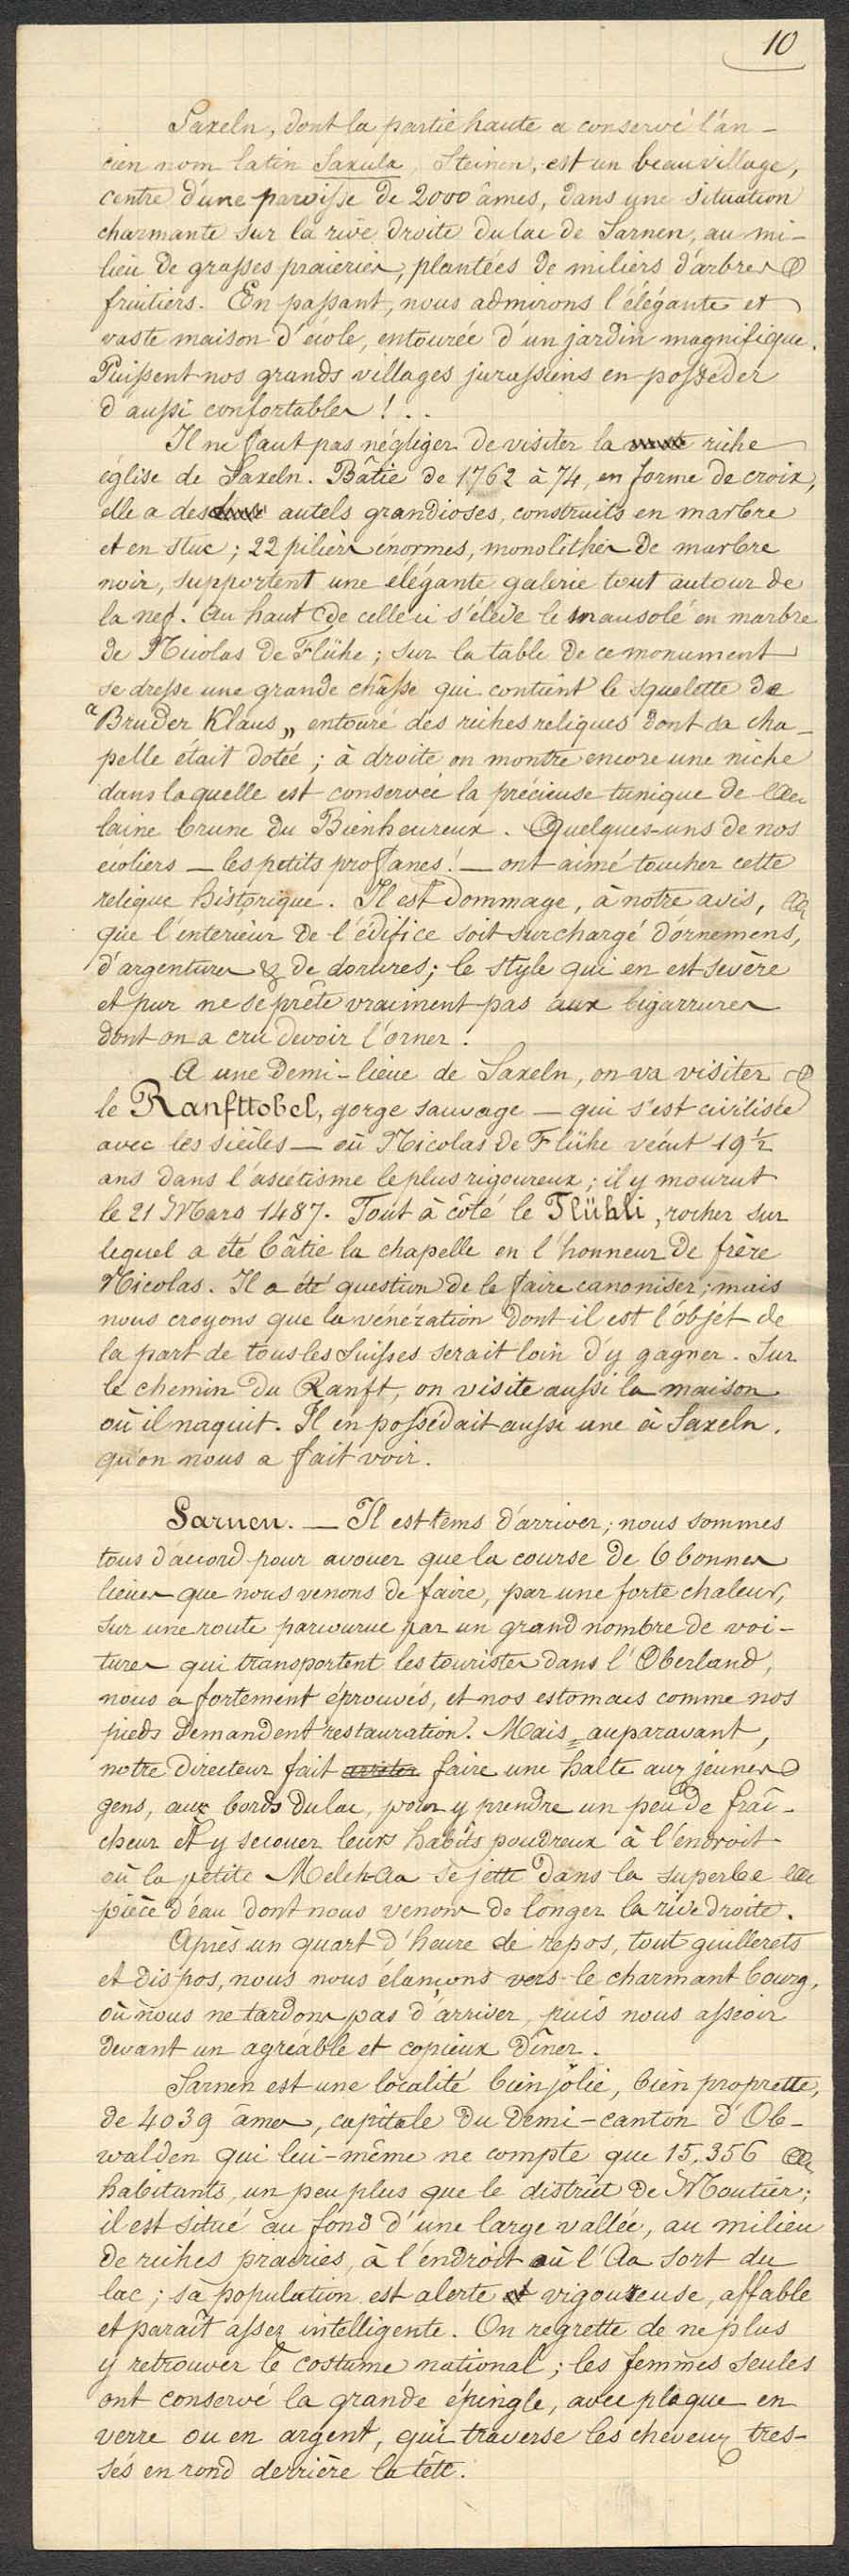 10
Saxeln, dont la partie haute a conservé l'an-
cien nom latin Saxula, Steinen, est un beau village,
centre d'une paroisse de 2000 âmes, dans une situation
charmante sur la rive droite du lac de Sarnen, au mi-
lieu de grasses praieries, plantées de miliers d'arbres
fruitiers. En passant, nous admirons l'élégante et
vaste maison d'école, entourée d'un jardin magnifique.
Puissent nos grands villages jurassiens en posséder
d'aussi confortables !..
Il ne faut pas négliger de visiter la riche
église de Saxeln. Bâtie de 1762 à 74, en forme de croix,
elle a des autels grandioses, construits en marbre
et en stuc ; 22 piliers énormes, monolithes de marbre
noir, supportent une élégante galerie tout autour de
la nef. Au haut de celle ci s'élève le mausolé en marbre
de Nicolas de Flühe ; sur la table de ce monument
se dresse une grande châsse qui contient le squelette de
"Bruder Klaus„ entouré des riches reliques dont sa cha-
pelle était dotée ; à droite on montre encore une niche
dans laquelle est conservée la précieuse tunique de
laine brune du Bienheureux. Quelques-uns de nos
écoliers — les petits profanes ! — ont aimé toucher cette
relique historique. Il est dommage, à notre avis,
que l'interieur de l'édifice soit surchargé d'ornemens,
d'argentures & de dorures ; le style qui en est sevère
et pur ne se prête vraiment pas aux bigarrures
dont on a cru devoir l'orner.
A une demi-lieue de Saxeln, on va visiter
le Ranfttobel, gorge sauvage — qui s'est civilisée
avec les siècles — où Nicolas de Flühe vécut 19 ½
ans dans l'ascétisme le plus rigoureux ; il y mourut
le 21 Mars 1487. Tout à côté le Flühli, rocher sur
lequel a été bâtie la chapelle en l'honneur de frère
Nicolas. Il a été question de le faire canoniser ; mais
nous croyons que la vénération dont il est l'objet de
la part de tous les Suisses serait loin d'y gagner. Sur
le chemin du Ranft, on visite aussi la maison
où il naquit. Il en possédait aussi une à Saxeln,
qu'on nous a fait voir.
Sarnen. — Il est tems d'arriver ; nous sommes
tous d'accord pour avouer que la course de 6 bonnes
lieues que nous venons de faire, par une forte chaleur,
sur une route parcourue par un grand nombre de voi-
tures qui transportent les touristes dans l'Oberland,
nous a fortement éprouvés, et nos estomacs comme nos
pieds demandent restauration. Mais, auparavant,
notre directeur fait faire une halte aux jeunes
gens, aux bords du lac, pour y prendre un peu de fraî-
cheur et y secouer leurs habits poudreux à l'endroit
où la petite Melch-Aa se jette dans la superbe
pièce d'eau dont nous venons de longer la rive droite.
Après un quart d'heure de repos, tout guillerets
et dispos, nous nous élançons vers le charmant bourg,
où nous ne tardons pas d'arriver, puis nous asseoir
devant un agréable et copieux dîner.
Sarnen est une localité bien jolie, bien proprette,
de 4039 âmes, capitale du demi-canton d'Ob-
walden qui lui-même ne compte que 15,356
habitants, un peu plus que le district de Moutier ;
il est situé au fond d'une large vallée, au milieu
de riches prairies, à l'endroit où l'Aa sort du
lac ; sa population est alerte et vigoureuse, affable
et paraît assez intelligente. On regrette de ne plus
y retrouver le costume national ; les femmes seules
ont conservé la grande épingle, avec plaque en
verre ou en argent, qui traverse les cheveux tres-
sés en rond derrière la tête.